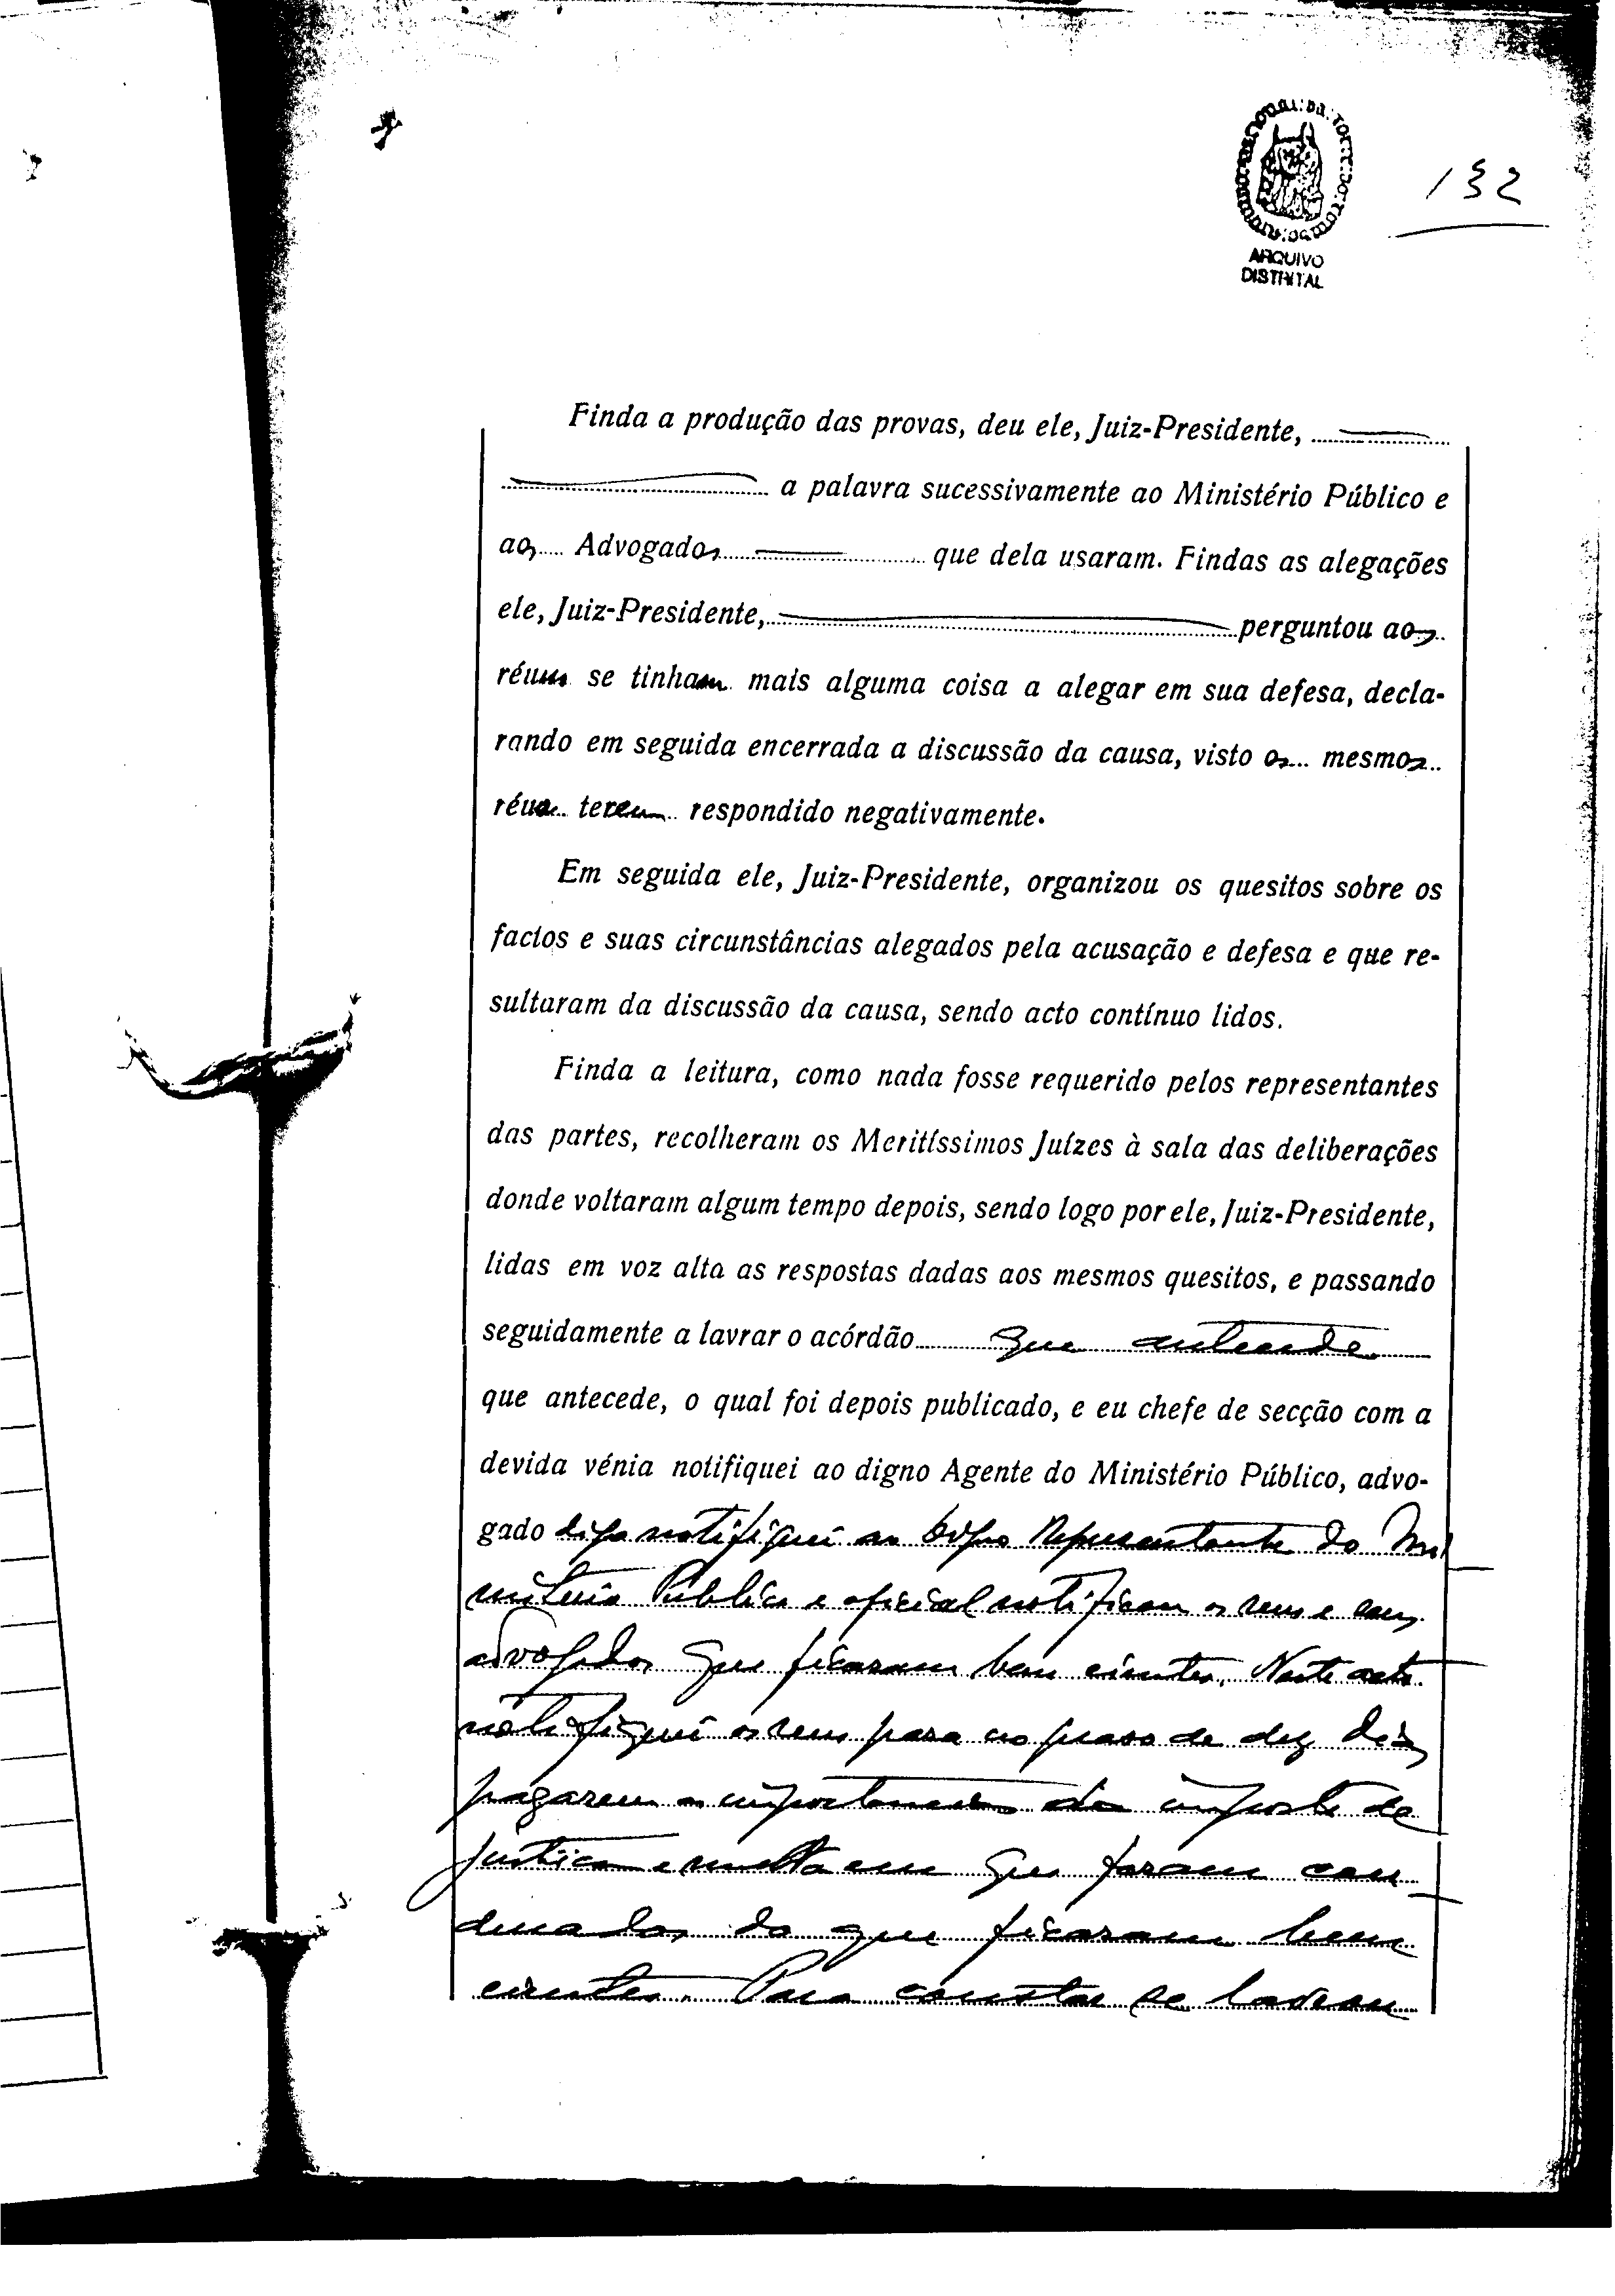 132
ARQUIVO
DISTRITAL
Finda a produção das provas, deu ele, Juiz-Presidente,
a palavra sucessivamente ao Ministério Público e
aos Advogados que dela usaram. Findas as alegações
ele, Juiz-Presidente, perguntou aos
réus se tinham mais alguma coisa a alegar em sua defesa, decla-
rando em seguida encerrada a discussão da causa, visto os mesmos
réus terem respondido negativamente.
Em seguida ele, Juiz-Presidente, organizou os quesitos sobre os
factos e suas circunstâncias alegados pela acusação e defesa e que re-
sultaram da discussão da causa, sendo acto contínuo lidos.
Finda a leitura, como nada fosse requerido pelos representantes
das partes, recolheram os Meritíssimos Juízes à sala das deliberações
donde voltaram algum tempo depois, sendo logo por ele, Juiz-Presidente,
lidas em voz alta as respostas dadas aos mesmos quesitos, e passando
seguidamente a lavrar o acórdão que antecede
que antecede, o qual foi depois publicado, e eu chefe de secção com a
devida vénia notifiquei ao digno Agente do Ministério Público, advo-
gado digo notifiquei ao Digno Representante do Mi
nistério Público e oficial notificou os reus e seus
advogados que ficaram bem cientes. Neste acto
notifiquei os reus para no praso de dez dias
pagarem as importancias do imposto de
justiça e multa em que foram con
denados do que ficaram bem
cientes. Para constar se lavrou